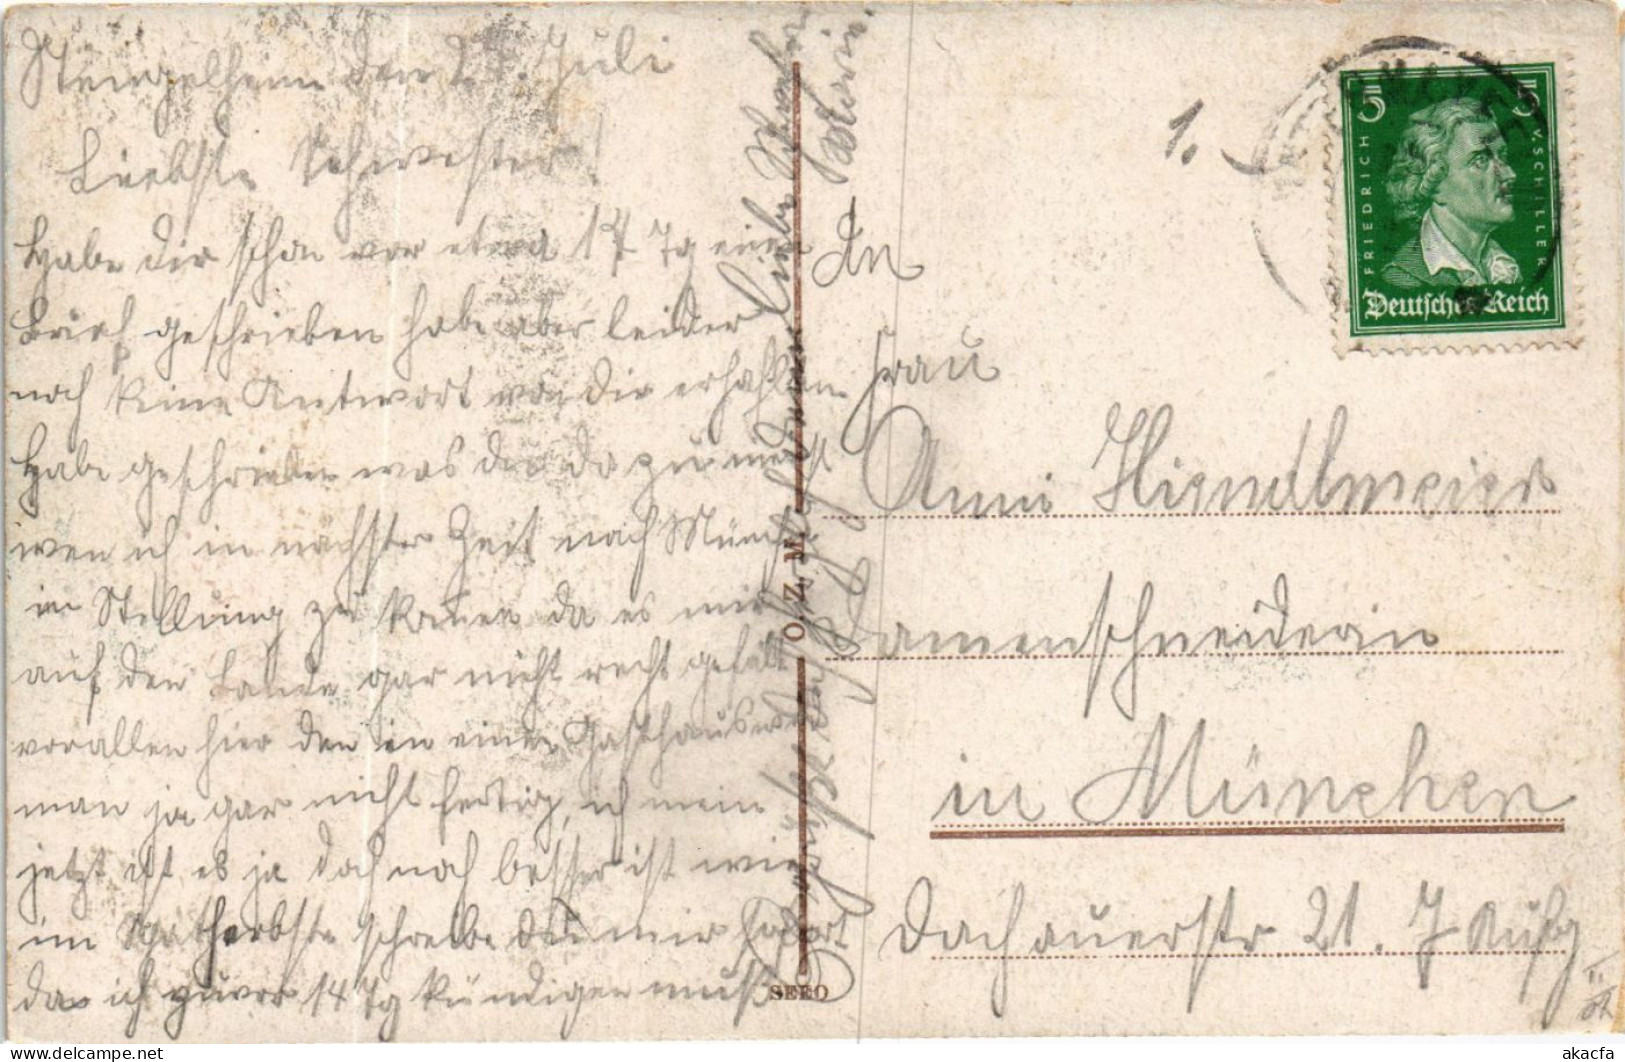 Stengelheim den 27. Juli
Liebste Schwester!
Habe dir schon vor etwa 14 Tg einen
Brief geschrieben habe aber leider
noch keine Antwort von dir erhalten
Habe geschrieben was du dazu meinst
wen ich in nächster Zeit nach Münch
in Stellung zu kommen da es mir
auf den Lande gar nicht recht gefällt
vorallen hier den in einen Gasthaus wird
man ja gar nicht fertig, ich mein
jetzt ist es ja doch noch besser ist wie
im Spätherbste schreibe du mir sofort
da ich zuvor 14 Tg kündigen muß
1.
An
Frau
Anni Hiendlmeier
Damenschneiderin
in München
Dachauerstr 21. I Aufg
II
FRIEDRICH V SCHILLER
5 5
Deutsches Reich
O. Z. M.
SEEO
akacfa